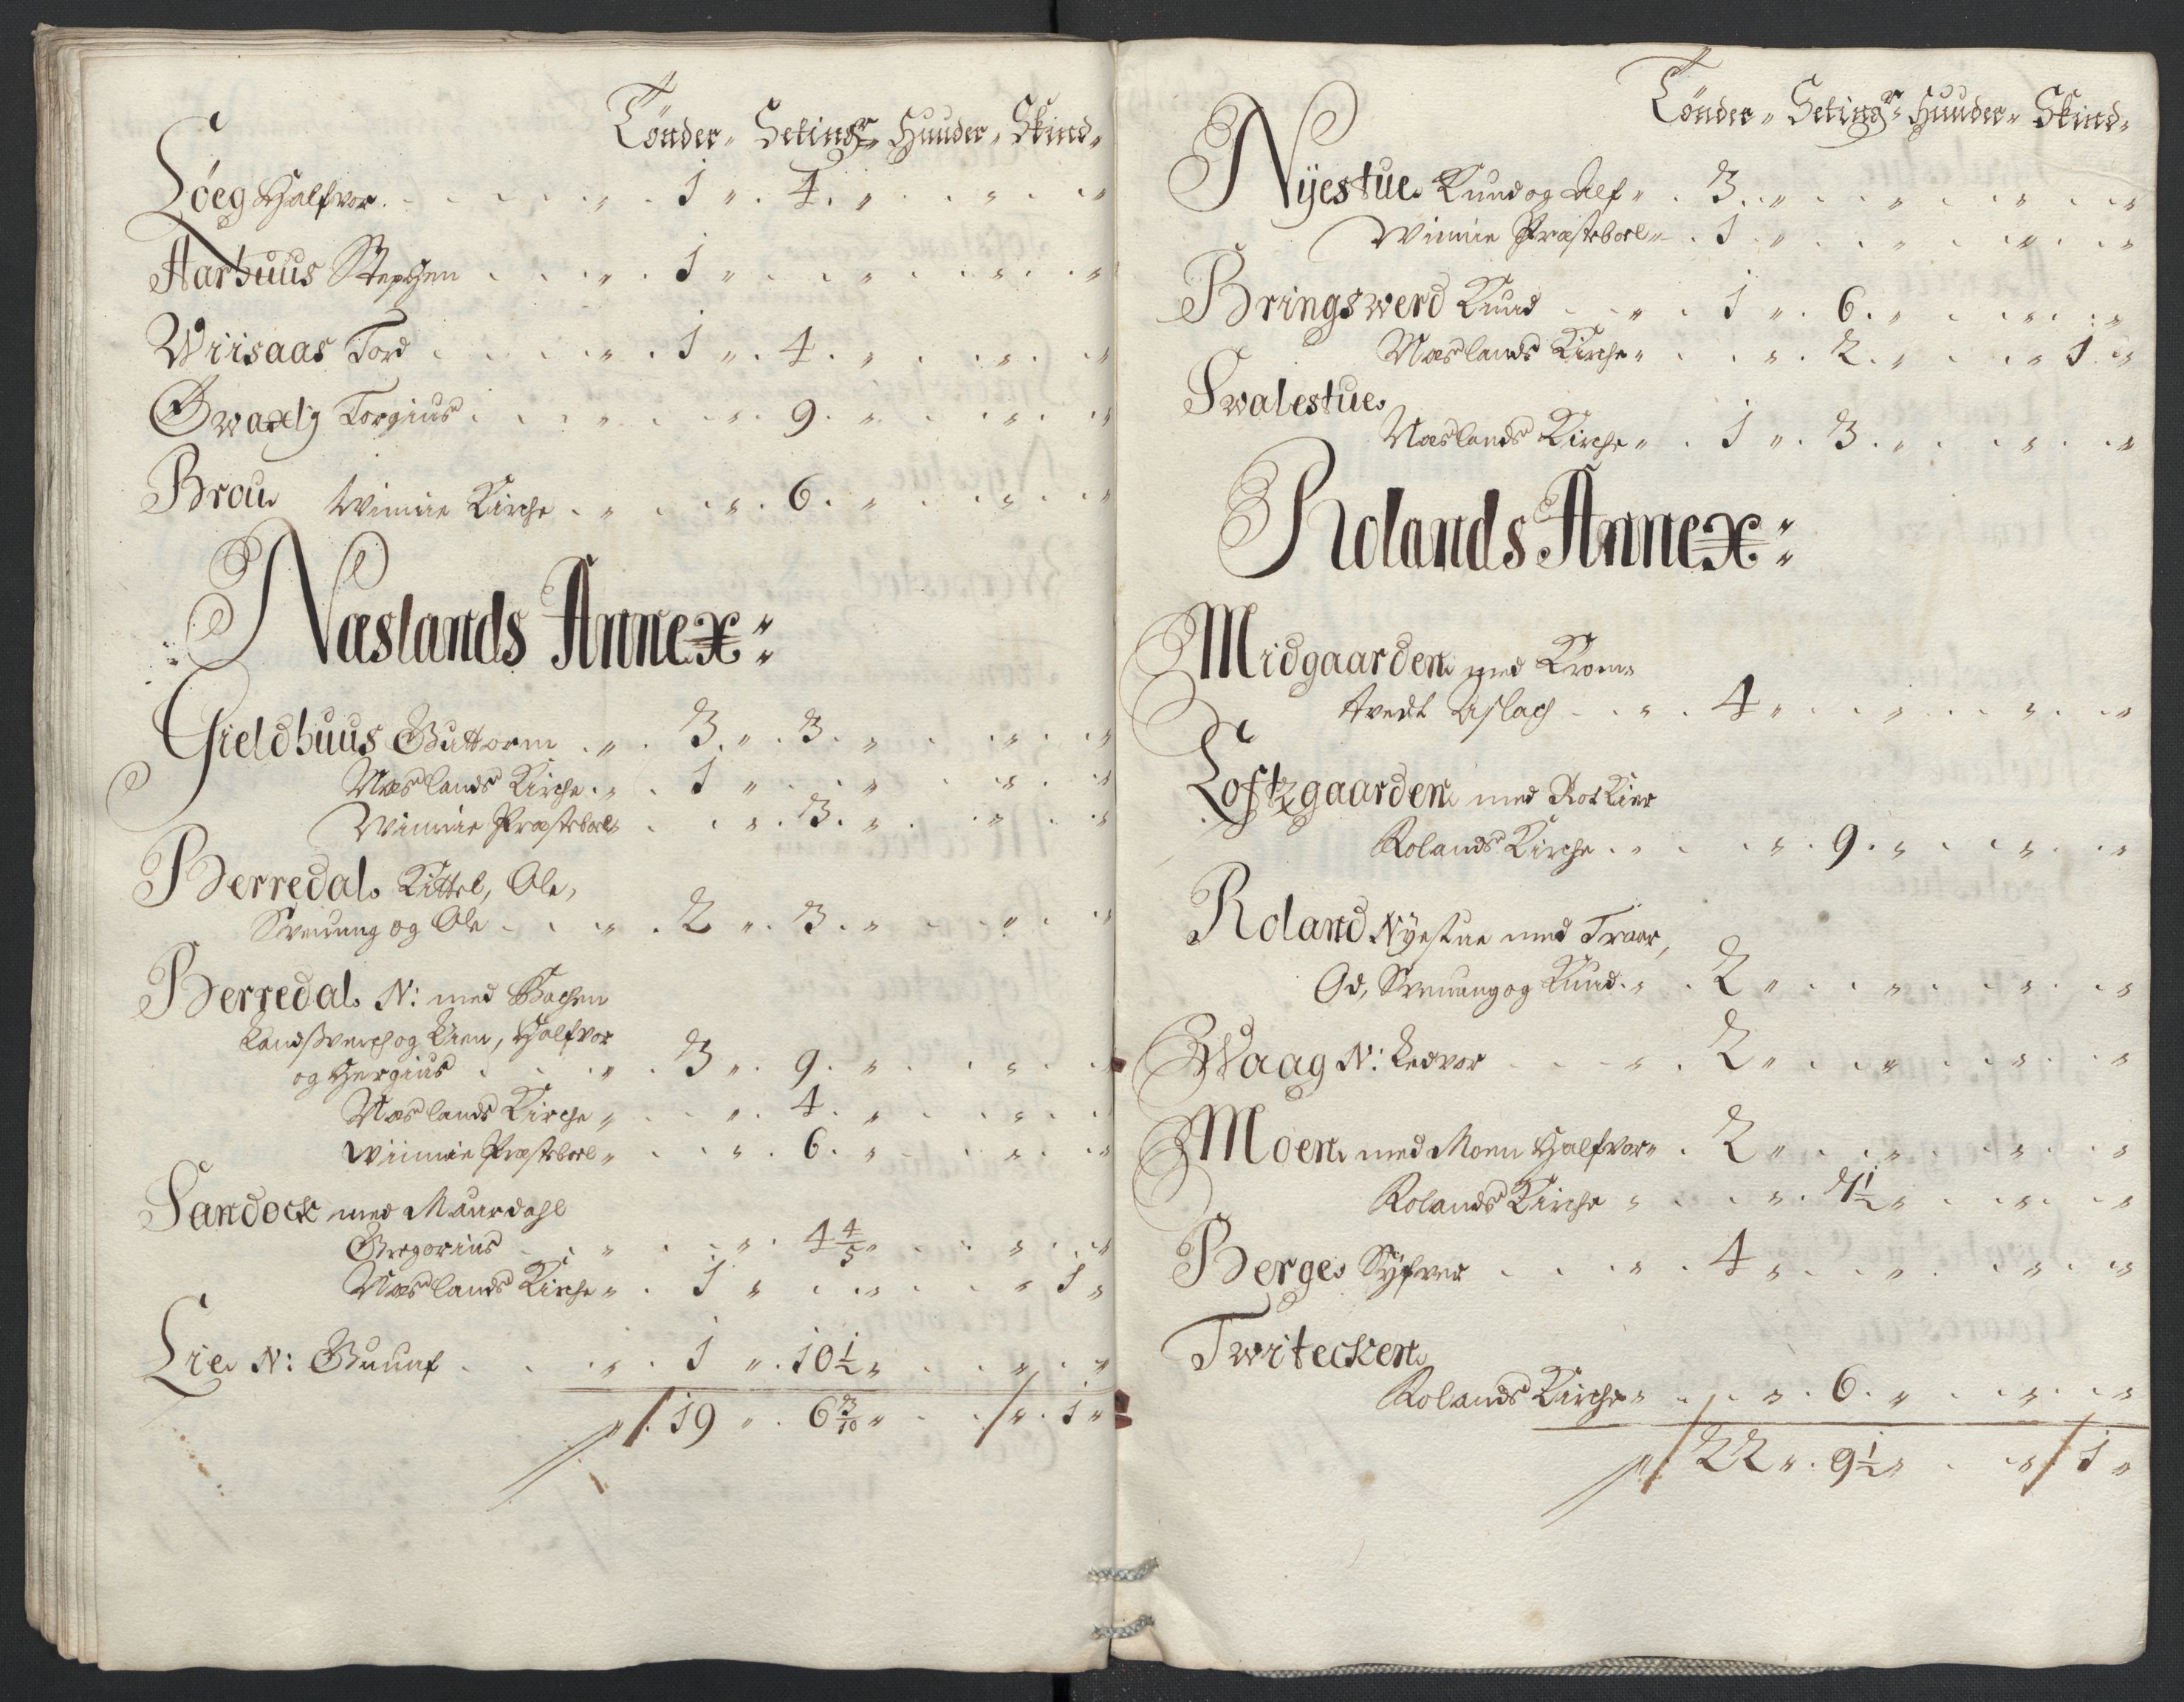 Tönder „ Setingr „ Huuder „ Skind „
Löeg Halfvor . . . . . „ . 1 „ . 4 . „ . . „ . . „
Aarhuus Stephen . . . „ . 1 „ . . . „ . . „ . . „
Wriisaas Tord . . . . „ . 1 „ . 4 . „ . . „ . . „
Öwaelg Torgius . . . „ . . „ . 9 . „ . . „ . . „
Brou Winnie Kirche . „ . . „ . 6 . „ . . „ . . „
Næslands Annex :
Gieldhuus Guttorm . „ . 3 . „ . 3 . „ . . „ . . „
Næslands Kirche . „ . 1 „ . . . „ . . „ . . „
Winnie Præsteboel . . „ . 3 . „ . . „ . . „
Berredal Kittel, Ole,
Sveinung og Ole . . . „ . 2 „ . 3 . „ . . „ . . „
Berredal N: med Bachen
Landsverch og Lien, Halfvor
og Hergius . . . „ . 3 „ . 9 . „ . . „ . . „
Næslands Kirche „ . . „ . 4 . „ . . „ . . „
Winnie Præsteboel „ . . „ . 6 . „ . . „ . . „
Sandock med Maurdahl
Gregorius . . „ . . „ . 4 4/5 „ . . „ . . „
Næslands Kirche „ . 1 „ . . . „ . . „ 1 „
Lie N: Gunuf . . . „ . 1 „ . 10 1/2 „ . . „ . „
„ /. 19 „ . 6 3/10 „ . . / „ . 1 „
Tönder „ Setingr „ Huuder „ Skind „
Nÿestue Knud og Alf „ . 3 . „ . . „ . . „ . . „
Winnie Præsteboel „ . 1 . „ . . „ . . „ . . „
Bringswerd Knud . . „ . 1 „ . 6 . „ . . „ . . „
Næslands Kirche „ . . „ . 2 . „ . . „ 1 . „
Swalestue
Næslands Kirche „ . 1 „ . 3 . „ . . „ . . „
Rolands Annex :
Midgaarden med Krom-
tvedt Aslach . . „ . 4 „ . . „ . . „ . . „
Loftzgaarden med Rotkier
Rolands Kirche . „ . . „ . 9 . „ . . „ . . „
Roland Nÿestue med Traer,
Od, Sveinung og Knud . „ . 2 „ . . „ . . „ . . „
Waag N: Ledvor . . . „ . 2 „ . . „ . . „ . . „
Moen med Moen Halfvor „ . 2 „ . . „ . . „ . . „
Rolands Kirche „ . . „ . 7 1/2 „ . . „ . . „
Berge Syfver . . . „ . 4 „ . . „ . . „ . . „
Twitecken
Rolands Kirche „ . . „ . 6 . „ . . „ . . „
„ / 22 „ . 9 1/2 „ . . „ / 1 „